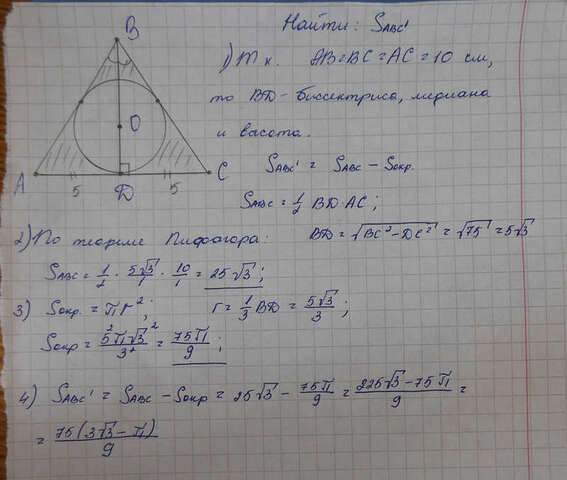 Найти: S_ABC'
1) Т.к. AB=BC=AC=10 см,
то BD - биссектриса, медиана
и высота.
S_ABC' = S_ABC - S_окр.
S_ABC = 1/2 BD·AC;
B
O
A
5
D
5
C
2) По теореме Пифагора: BD = √(BC² - DC²) = √75 = 5√3
S_ABC = 1/2 · 5√3/1 · 10/1 = 25√3;
3) S_окр. = πr²; r = 1/3 BD = 5√3/3;
S_окр = 5²π√3²/3² = 75π/9;
4) S_ABC' = S_ABC - S_окр = 25√3 - 75π/9 = (225√3 - 75π)/9 =
= 75(3√3 - π)/9